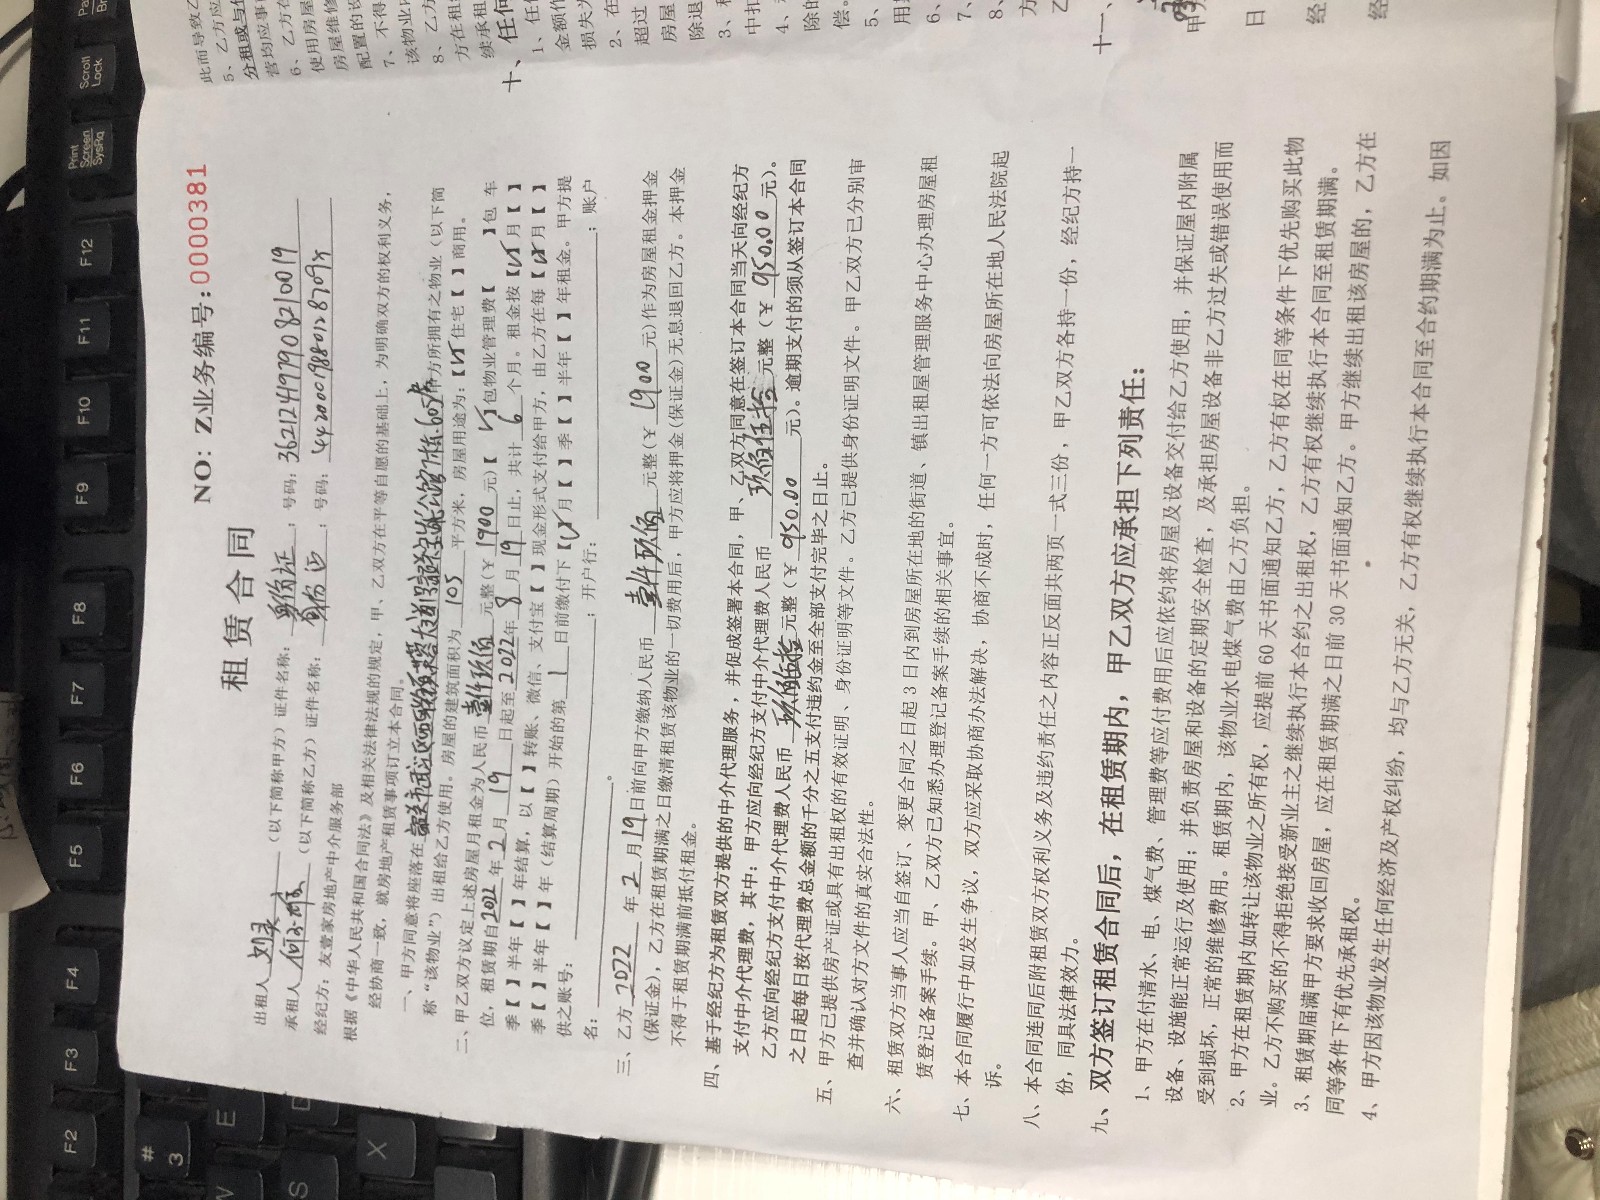 NO: Z业务编号:0000381
租赁合同
出租人 (以下简称甲方) 证件名称: 身份证 ; 号码: 362124197908210019
承租人 (以下简称乙方) 证件名称: 身份证 ; 号码: 44200019880128709X
经纪方: 友壹家房地产中介服务部
根据《中华人民共和国合同法》及相关法律法规的规定, 甲、乙双方在平等自愿的基础上, 为明确双方的权利义务,
经协商一致, 就房地产租赁事项订立本合同。
一、甲方同意将座落在 605房 甲方所拥有之物业 (以下简
称“该物业”) 出租给乙方使用。房屋的建筑面积为 105 平方米, 房屋用途为: 【√】住宅【 】商用。
二、甲乙双方议定上述房屋月租金为人民币 壹仟玖佰 元整(¥ 1900 元)【 √ 】包物业管理费【 】包 车
位, 租赁期自2022 年 2 月 19 日起至 2022年 8 月 19 日止, 共计 6 个月。租金按【√】月【 】
季【 】半年【 】年结算, 以【 】转账、微信、支付宝【 】现金形式支付给甲方, 由乙方在每【√】月【 】
季【 】半年【 】年 (结算周期) 开始的第 1 日前缴付下【√】月【 】季【 】半年【 】年租金。甲方提
供之账号: ; 开户行: ; 账户
名: 。
三、乙方 2022 年 2 月 19 日前向甲方缴纳人民币 壹仟玖佰 元整 (¥ 1900 元) 作为房屋租金押金
(保证金), 乙方在租赁期满之日缴清租赁该物业的一切费用后, 甲方应将押金 (保证金) 无息退回乙方。本押金
不得于租赁期满前抵付租金。
四、基于经纪方为租赁双方提供的中介代理服务, 并促成签署本合同, 甲、乙双方同意在签订本合同当天向经纪方
支付中介代理费, 其中: 甲方应向经纪方支付中介代理费人民币 玖佰伍拾 元整 (¥ 950.00 元)。
乙方应向经纪方支付中介代理费人民币 玖佰伍拾 元整 (¥ 950.00 元)。逾期支付的须从签订本合同
之日起每日按代理费总金额的千分之五支付违约金至全部支付完毕之日止。
五、甲方已提供房产证或具有出租权的有效证明、身份证明等文件。乙方已提供身份证明文件。甲乙双方已分别审
查并确认对方文件的真实合法性。
六、租赁双方当事人应当自签订、变更合同之日起 3 日内到房屋所在地的街道、镇出租屋管理服务中心办理房屋租
赁登记备案手续。甲、乙双方已知悉办理登记备案手续的相关事宜。
七、本合同履行中如发生争议, 双方应采取协商办法解决, 协商不成时, 任何一方可依法向房屋所在地人民法院起
诉。
八、本合同连同后附租赁双方权利义务及违约责任之内容正反面共两页一式三份, 甲乙双方各持一份, 经纪方持一
份, 同具法律效力。
九、双方签订租赁合同后, 在租赁期内, 甲乙双方应承担下列责任:
1、甲方在付清水、电、煤气费、管理费等应付费用后应依约将房屋及设备交付给乙方使用, 并保证屋内附属
设备、设施能正常运行及使用; 并负责房屋和设备的定期安全检查, 及承担房屋设备非乙方过失或错误使用而
受到损坏, 正常的维修费用。租赁期内, 该物业水电煤气费由乙方负担。
2、甲方在租赁期内如转让该物业之所有权, 应提前 60 天书面通知乙方, 乙方有权在同等条件下优先购买此物
业。乙方不购买的不得拒绝接受新业主之继续执行本合约之出租权, 乙方有权继续执行本合同至租赁期满。
3、租赁期届满甲方要求收回房屋, 应在租赁期满之日前 30 天书面通知乙方。甲方继续出租该房屋的, 乙方在
同等条件下有优先承租权。
4、甲方因该物业发生任何经济及产权纠纷, 均与乙方无关, 乙方有权继续执行本合同至合约期满为止。如因
此而导致乙
5、乙方应
分租或与他
营均应事
6、乙方在
使用房屋
房屋维修
配置的设
7、不得
该物业内
8、乙方
方在租
续承租
十、任何
1、任
金额作
损失为
2、在
超过
房屋
除退
3、
中扣
4、
除的
偿。
5、
用
6、
7、
8、
方
乙
十一、
甲方
日
经
经
F2
F3
F4
F5
F6
F7
F8
F9
F10
F11
F12
Print
Screen
SysRq
Scroll
Lock
#
3
E
W
S
D
X